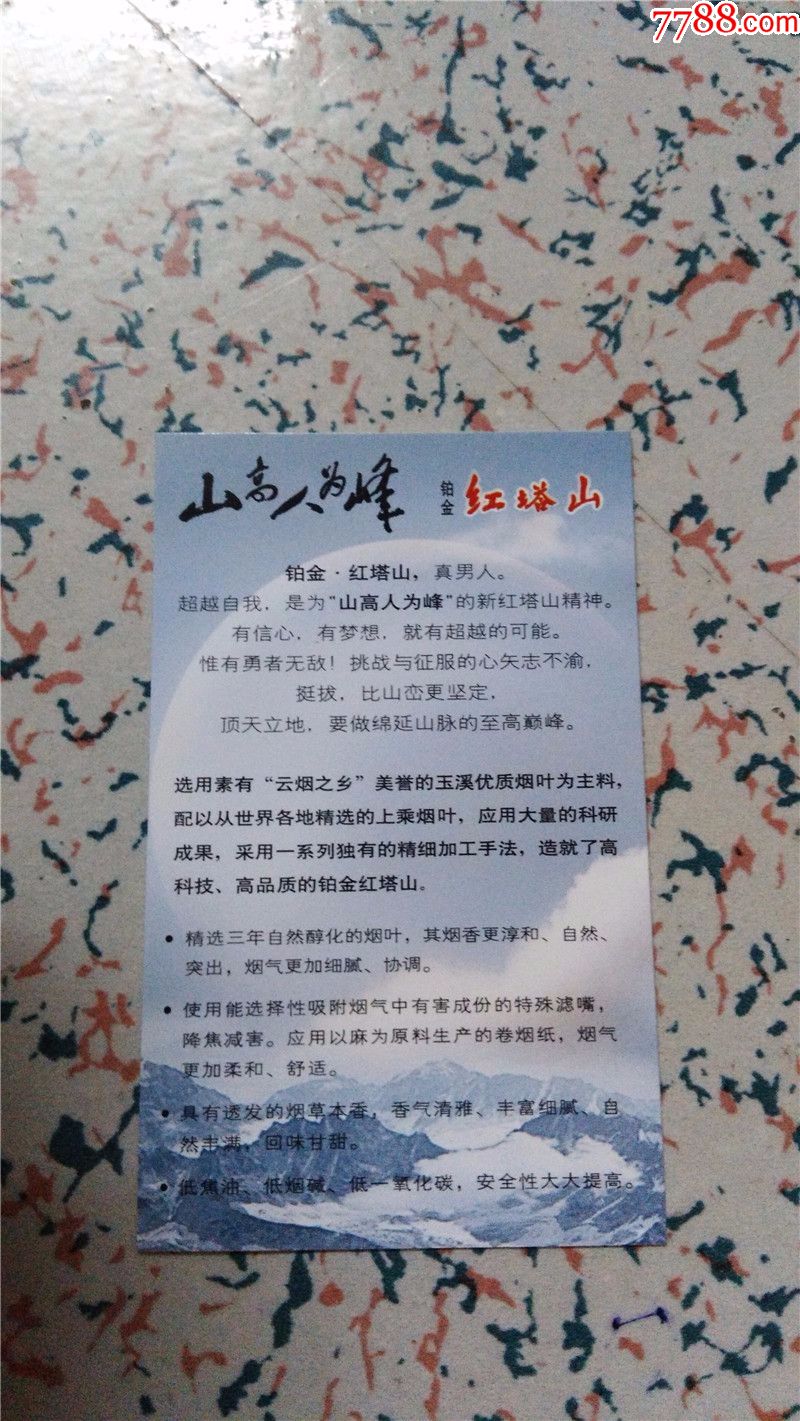 7788.com
山高人为峰 铂金 红塔山
铂金·红塔山，真男人。
超越自我，是为“山高人为峰”的新红塔山精神。
有信心，有梦想，就有超越的可能。
惟有勇者无敌！挑战与征服的心矢志不渝，
挺拔，比山峦更坚定，
顶天立地，要做绵延山脉的至高巅峰。
选用素有“云烟之乡”美誉的玉溪优质烟叶为主料，
配以从世界各地精选的上乘烟叶，应用大量的科研
成果，采用一系列独有的精细加工手法，造就了高
科技、高品质的铂金红塔山。
• 精选三年自然醇化的烟叶，其烟香更淳和、自然、
突出，烟气更加细腻、协调。
• 使用能选择性吸附烟气中有害成份的特殊滤嘴，
降焦减害。应用以麻为原料生产的卷烟纸，烟气
更加柔和、舒适。
• 具有透发的烟草本香，香气清雅、丰富细腻、自
然丰满，回味甘甜。
• 低焦油、低烟碱、低一氧化碳，安全性大大提高。